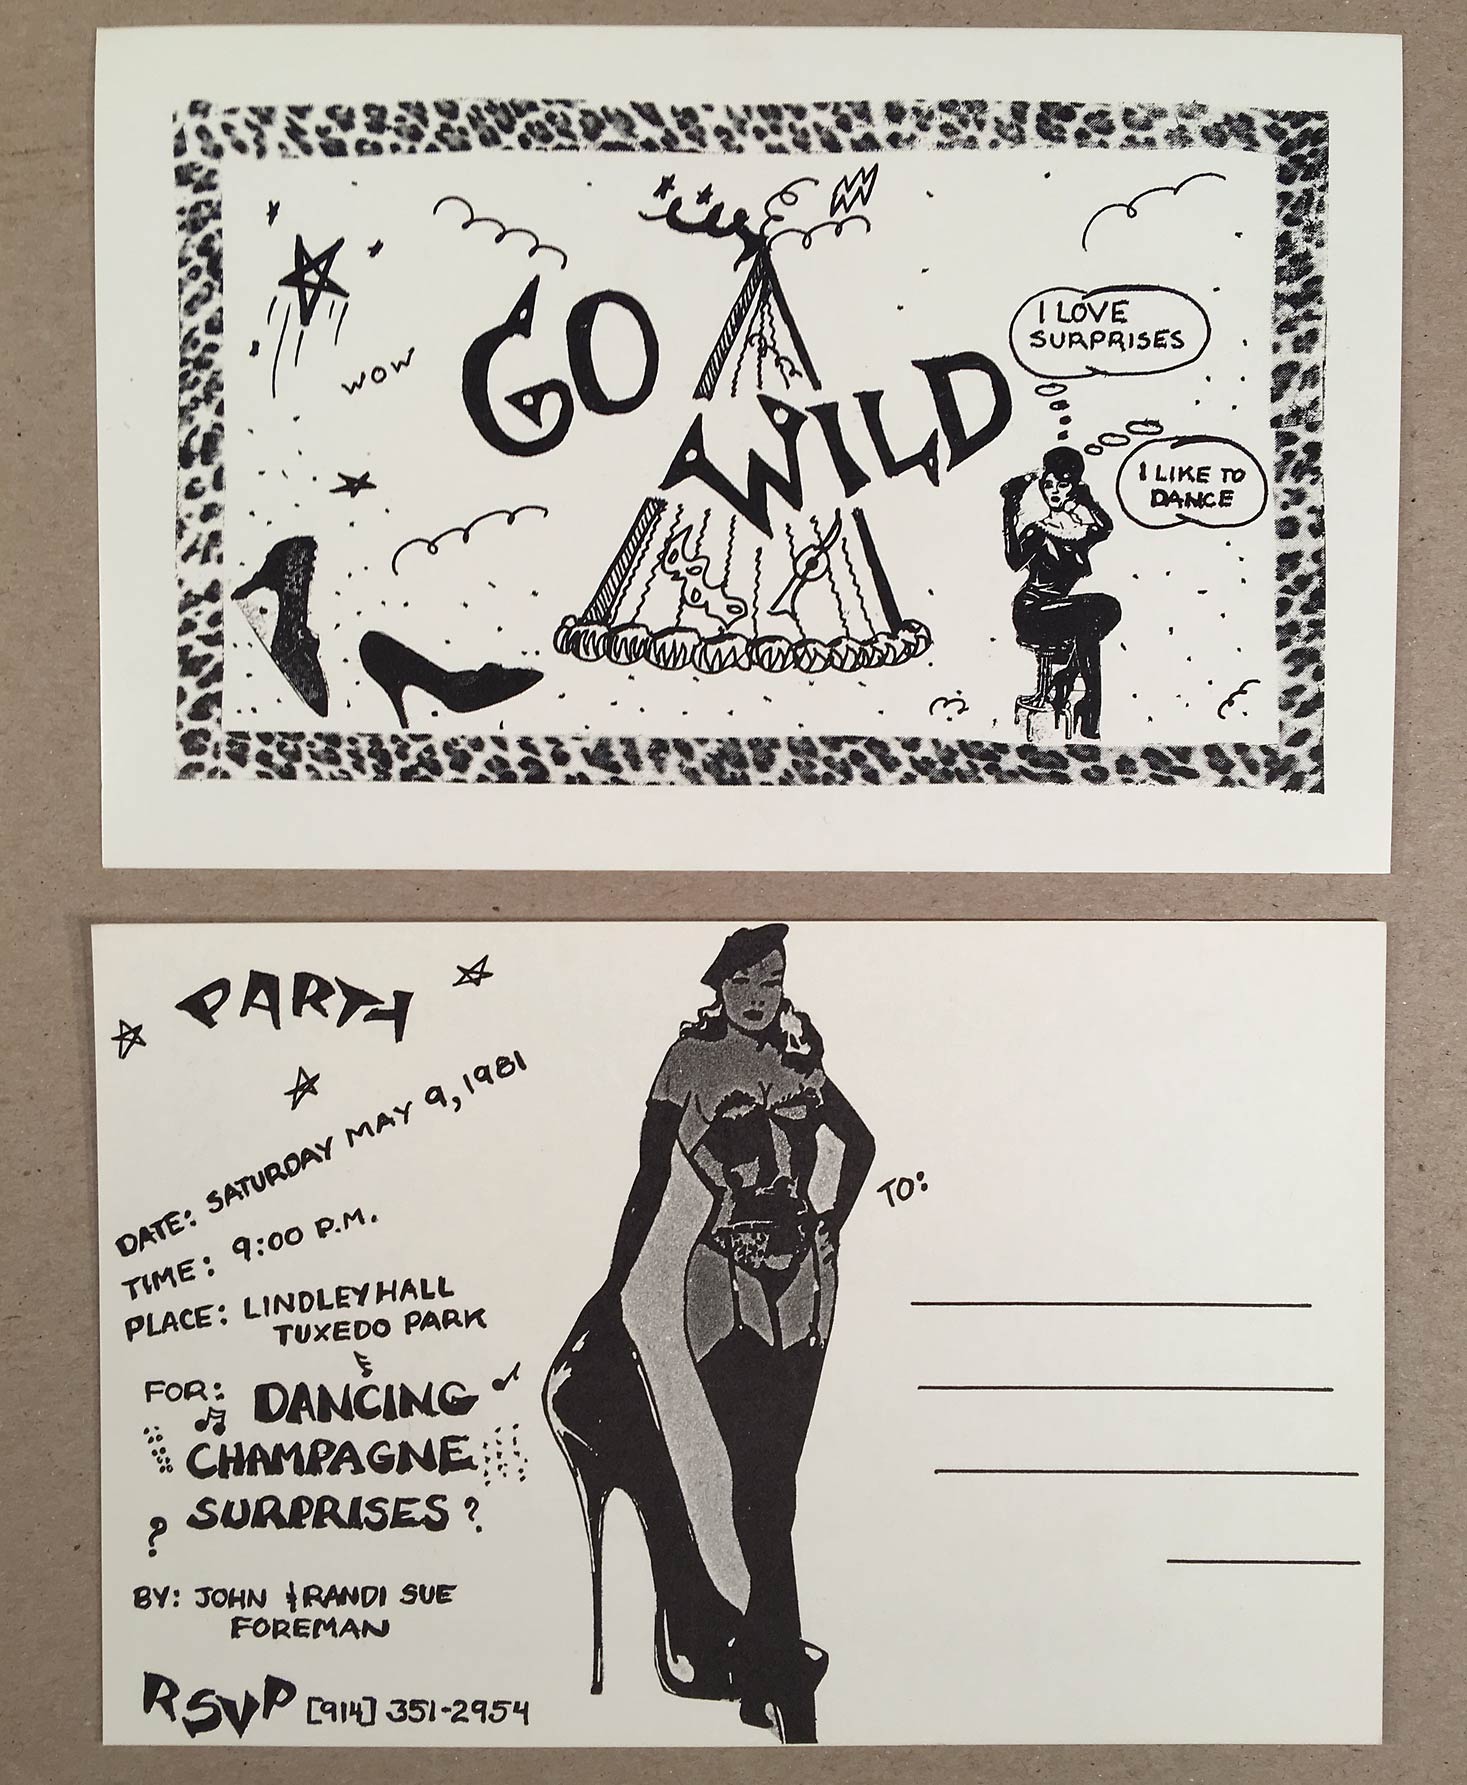 GO
WILD
WOW
I LOVE
SURPRISES
I LIKE TO
DANCE
PARTY
DATE: SATURDAY MAY 9, 1981
TIME: 9:00 P.M.
PLACE: LINDLEY HALL
TUXEDO PARK
FOR: DANCING
CHAMPAGNE
? SURPRISES ?
BY: JOHN & RANDI SUE
FOREMAN
RSVP [914] 351-2954
TO: